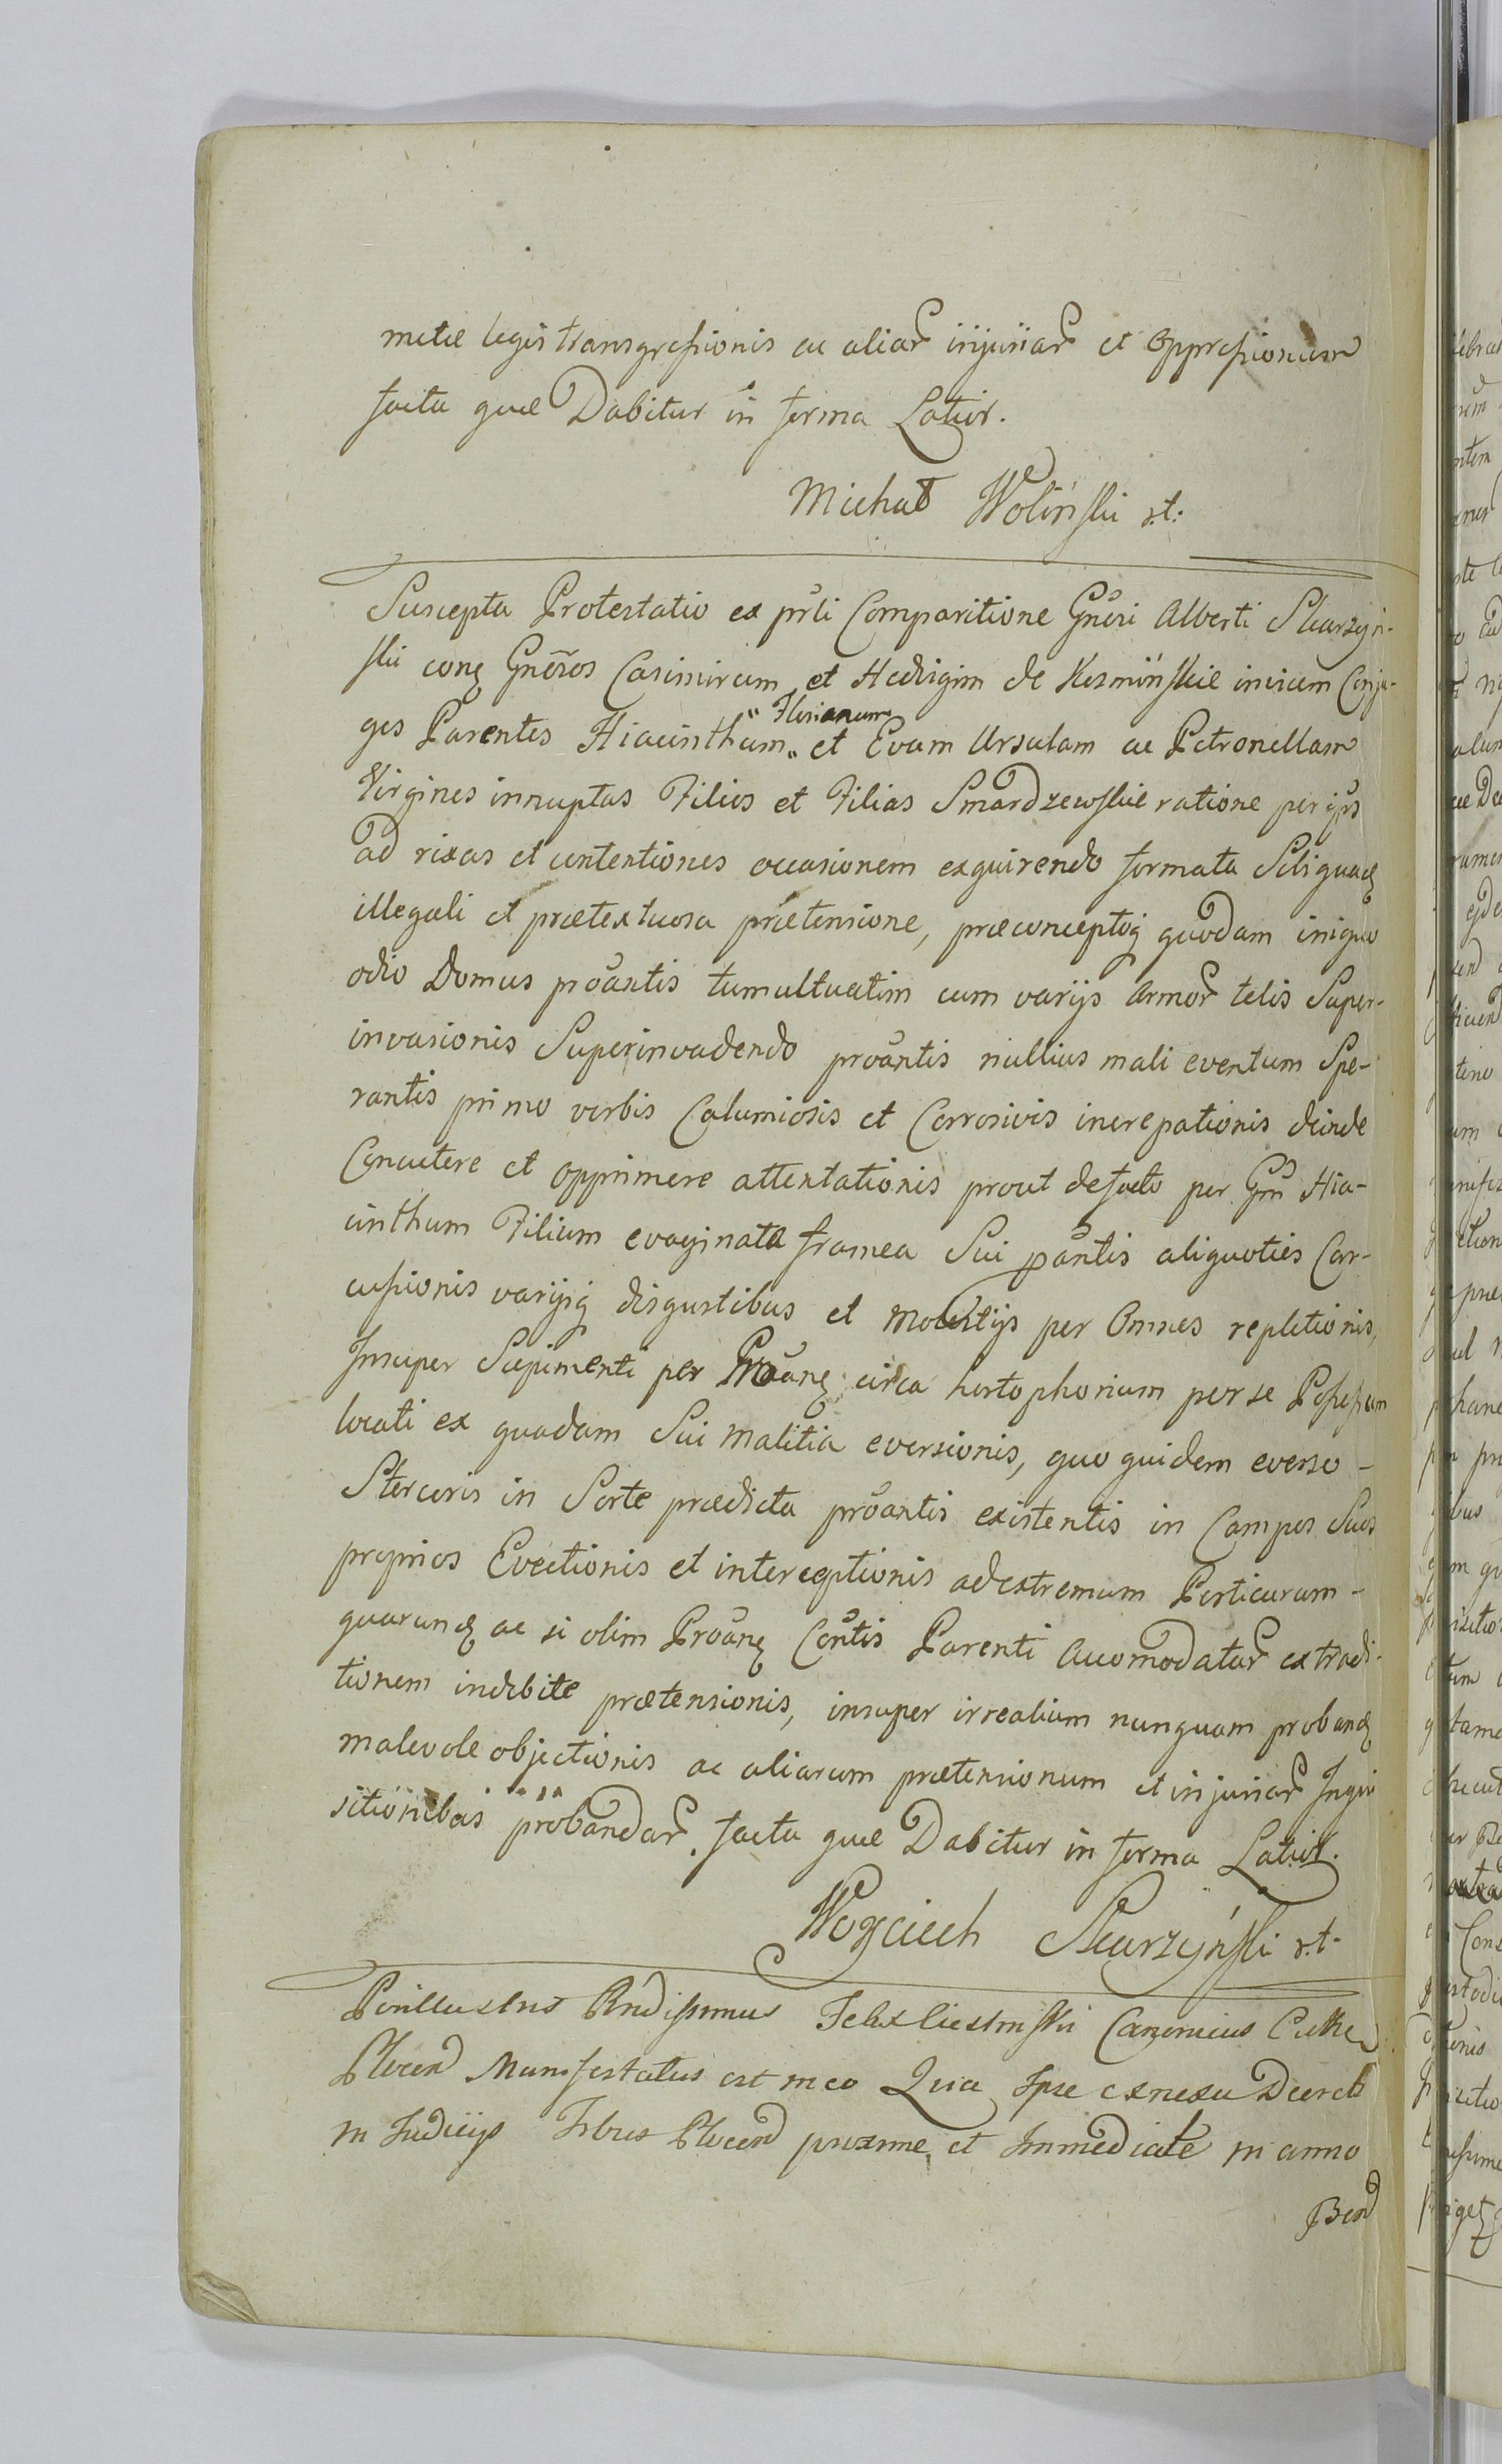 metæ legis transgressionis ac aliar injuriar et Oppressionum
facta quæ Dabitur in forma Latiori.
Michał Woliński r.t:
Suscepta Protestatio ex prsli Comparitione Gnesi Alberti Skarzyń-
ski conq Gneros Casimirum et Hedvigim de Kosmińskie invicem Conju-
ges Parentes Hiacinthum " Florianum " et Evam Ursulam ac Petronellam
Virgines innuptas Filios et Filias Smardzewskie ratione per ipsos
ad rixas et contentiones occasionem exquirendo formata Sibi quadq
illegali et prætextuosa prætensione, præconceptoq quodam iniquo
odio Domus proantis tumultuatim cum varijs Armor telis Super-
invasionis Superinvadendo proantis nullius mali eventum Spe-
rantis primo verbis Calumiosis et Corrosivis increpationis deinde
Concutere et opprimere attentationis prout defacto per Gm Hia-
cinthum Filium evaginata framea Sui pantis aliquoties Con-
cussionis varijsq disgustibus et Molestijs per Omnes repletionis,
Insuper Sepimenti per Proanq circa hortophorium per se Possessum
locati ex quadam Sui malitia eversionis, quo quidem everso -
Stercoris in Sorte prædicta proantis existentis in Campos Suos
proprios Evectionis et interceptionis ad extremum Perticarum -
quarundq ac si olim Proanq Contis Parenti Accomodatar extradi-
tionem indebite prætensionis, insuper irrealium nunquam probandq
malevole objectionis ac aliarum prætensionum et injuriar Inqui
sitionibus probandar facta quæ Dabitur in forma Latiori.
Woyciech Skarzyński r.t.
Perillustris Rndissimus Felix Canonicus Cathe
Plocen Manifestatus est in eo Quia Ipse ex nexu Decreti
in Judicijs Plocen proxime et Immediate in anno